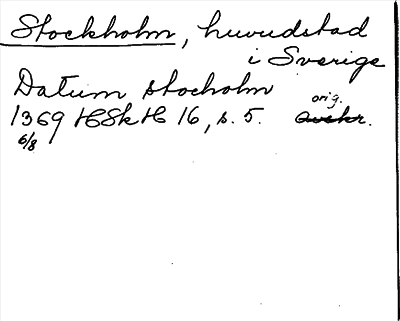 Stockholm, huvudstad
i Sverige
Datum stocholm
orig.
1369 HSkH 16, s. 5. Avskr.
6/8